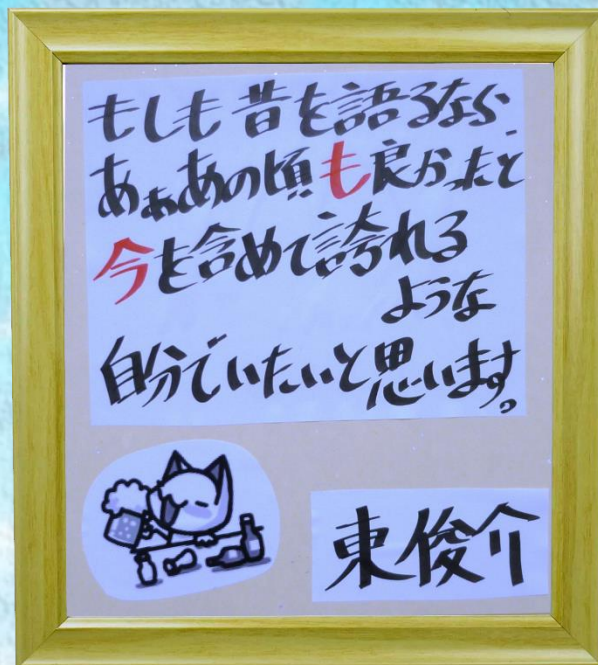 もしも昔を語るなら、
あぁあの頃も良かったと
今を含めて誇れる
ような
自分でいたいと思います。
東俊介